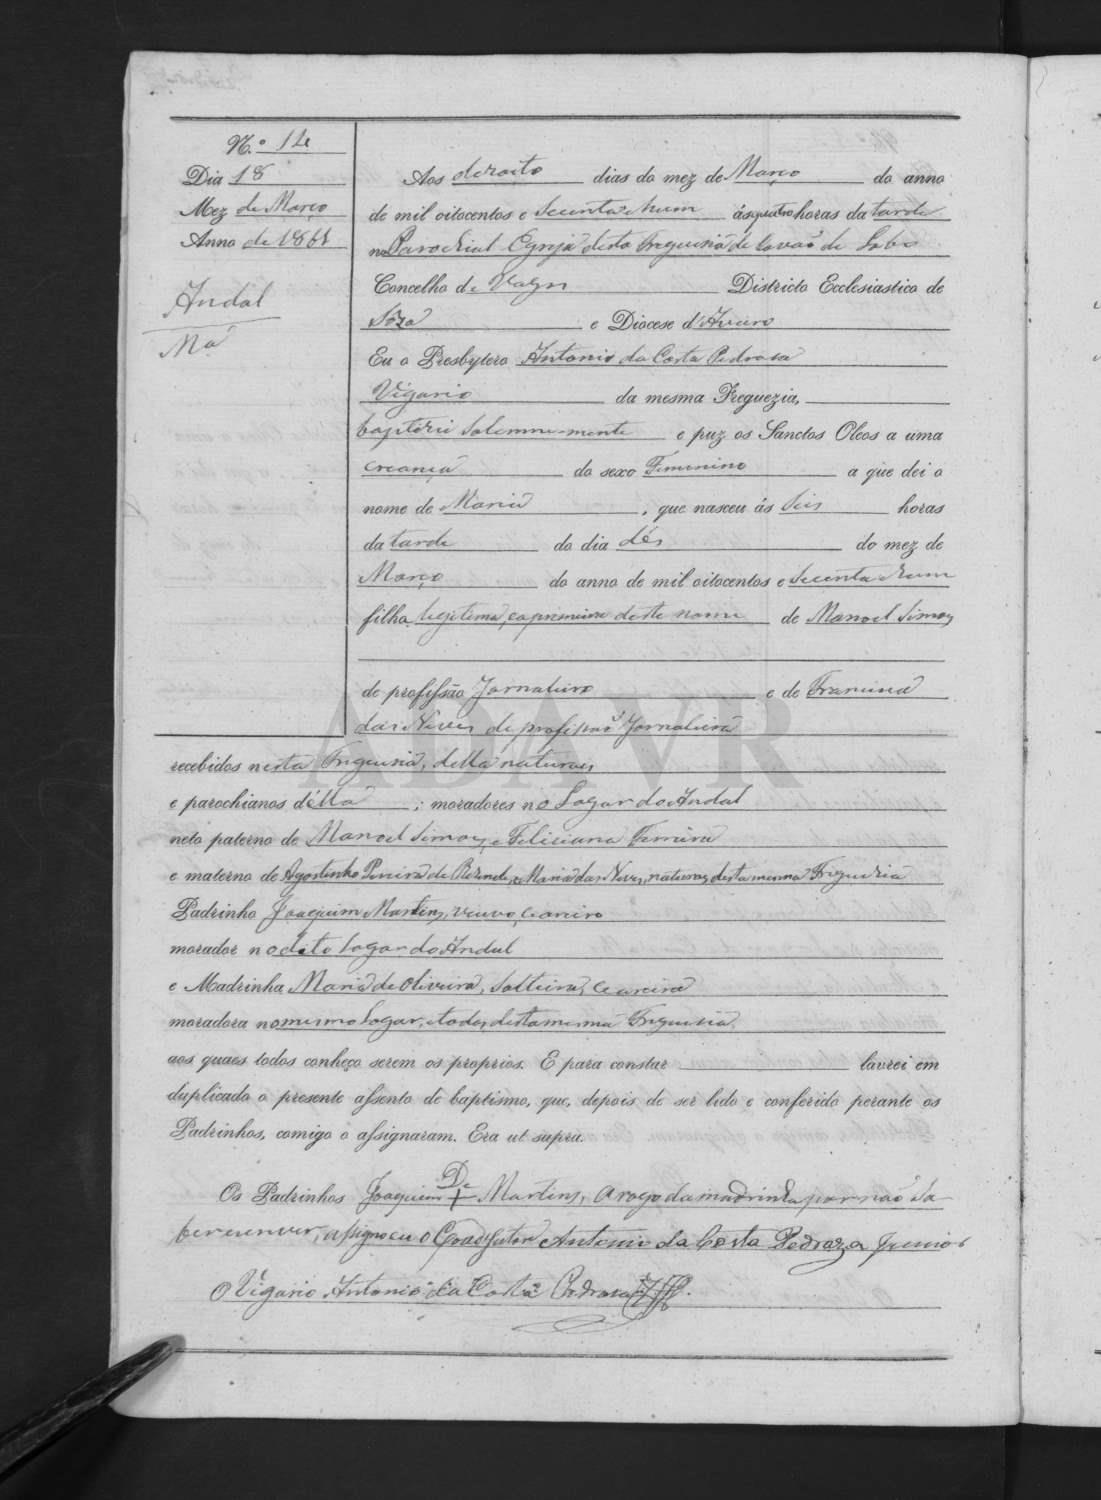 N.º 14
Dia 18
Mez de Março
Anno de 1861
Andal
Mª
Aos dezoito dias do mez de Março do anno
de mil oitocentos e secenta e hum ás quatro horas da tarde
na Parochial Egreja desta Freguesia de Covão de Lobo
Concelho de Vagos Districto Ecclesiastico de
Soza e Diocese d'Aveiro
Eu o Presbytero Antonio da Costa Pedrosa
Vigario da mesma Freguezia,
baptizei solemnemente e puz os Sanctos Oleos a uma
creança do sexo Femenino a que dei o
nome de Maria, que nasceu ás seis horas
da tarde do dia dés do mez de
Março do anno de mil oitocentos e secenta e hum
filha legitima, e a primeira deste nome de Manoel Simoes
de profissão Jornaleiro e de Francisca
das Neves de profissaõ Jornaleira
recebidos nesta Freguesia, della naturaes
e parochianos d'ella; moradores no Logar do Andal
neto paterno de Manoel Simoes, e Feliciana Ferreira
e materno de Agostinho Pereira de Rezende, e Maria das Neves, naturaes desta mesma Freguezia
Padrinho Joaquim Martins, veuvo, ceareiro
morador no dito Logar do Andal
e Madrinha Maria de Oliveira, solteira, ceareira
moradora no mesmo Logar, e todos desta mesma Freguesia
aos quaes todos conheço serem os proprios. E para constar lavrei em
duplicado o presente assento de baptismo, que, depois de ser lido e conferido perante os
Padrinhos, comigo o assignaram. Era ut supra.
Os Padrinhos Joaquim De + Martins, a rogo da madrinha por naõ sa
ber escrever, assignou eu o Coadjutor Antonio da Costa Pedroza Junior
O Vigario Antonio da Costa Pedrosa
ADAVR